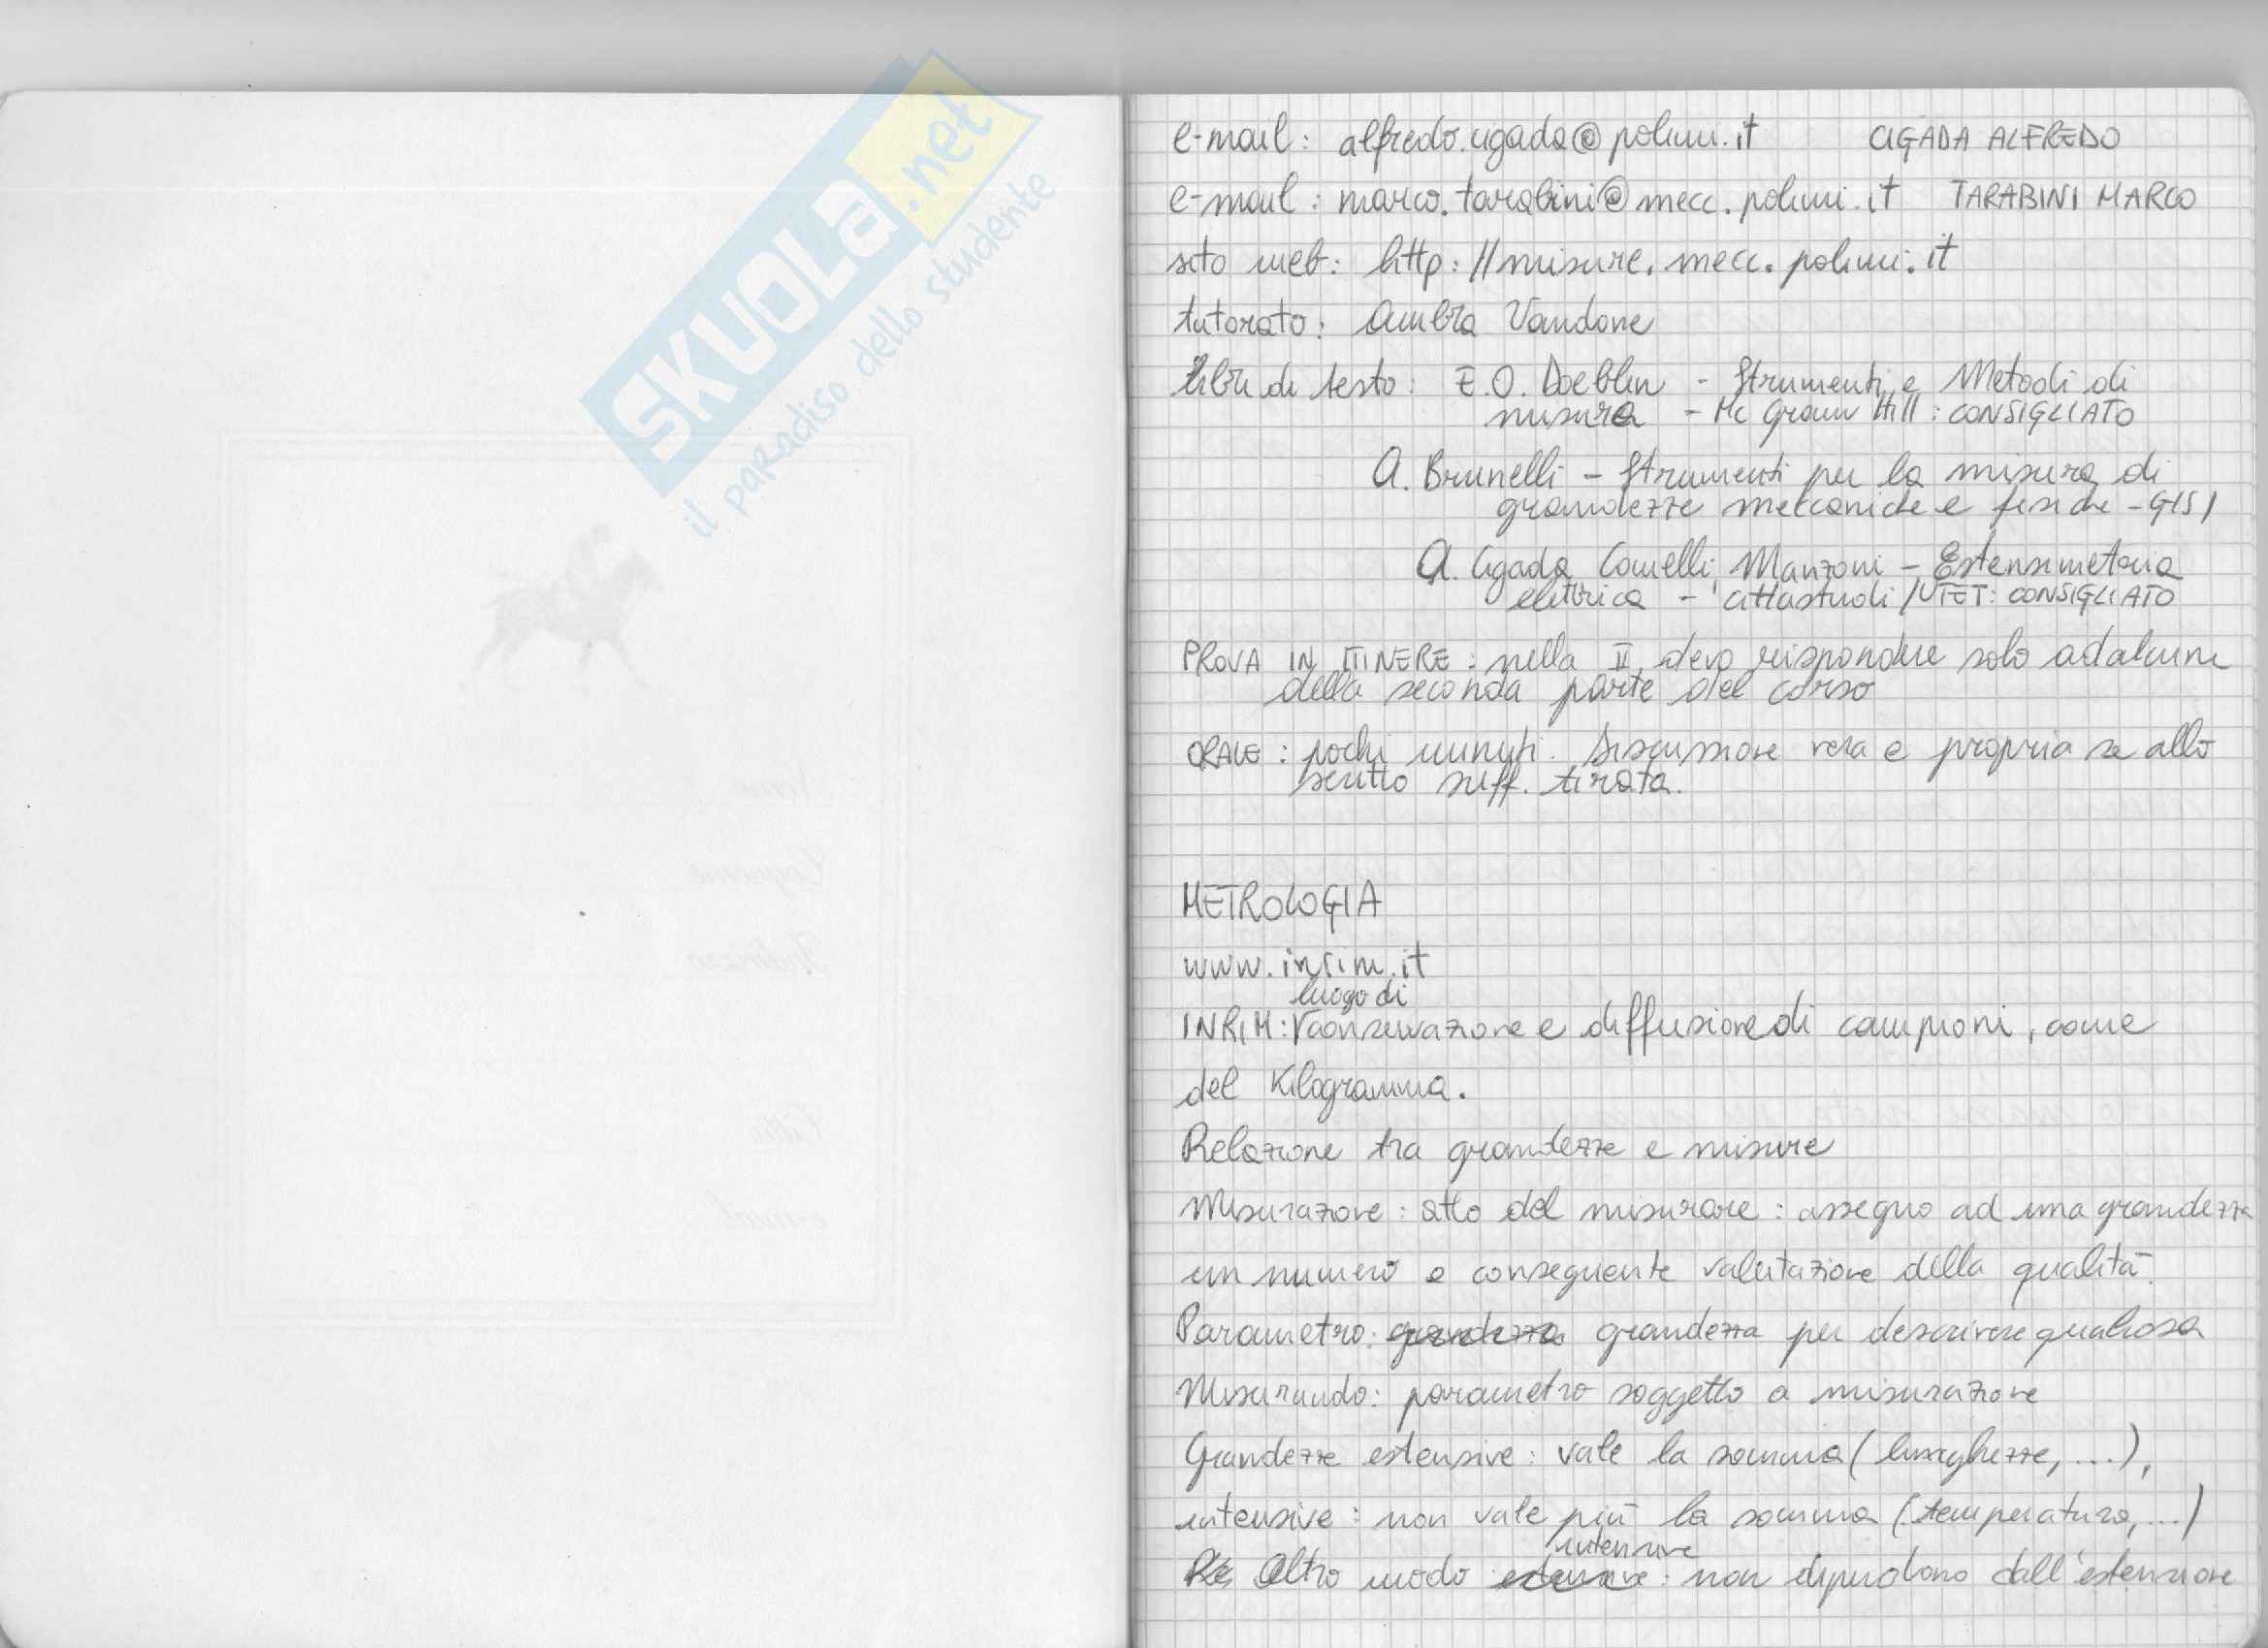 SKUOLA.net
il paradiso dello studente
e-mail: alfredo.cigada@polimi.it CIGADA ALFREDO
e-mail: marco.tarabini@mecc.polimi.it TARABINI MARCO
sito web: http://misure.mecc.polimi.it
tutorato: Ambra Vandone
libri di testo: E.O. Doeblin - Strumenti e Metodi di
misura - Mc Graw Hill: CONSIGLIATO
A. Brunelli - Strumenti per la misura di
grandezze meccaniche e fisiche - GISI
A. Cigada, Comolli, Manzoni - Estensimetria
elettrica - cittastudi/UTET: CONSIGLIATO
PROVA IN ITINERE: nella II devo rispondere solo ad alcune
della seconda parte del corso
ORALE: pochi minuti. Discussione vera e propria se allo
scritto suff. tirata.
METROLOGIA
www.inrim.it
luogo di
INRIM: conservazione e diffusione di campioni, come
del Kilogramma.
Relazione tra grandezze e misure
Misurazione: atto del misurare: assegno ad una grandezza
un numero e conseguente valutazione della qualità.
Parametro: grandezza grandezza per descrivere qualcosa
Misurando: parametro soggetto a misurazione
Grandezze estensive: vale la somma (lunghezze, ...),
intensive: non vale più la somma (temperatura, ...)
intensive
Altro modo estensive: non dipendono dall'estensione